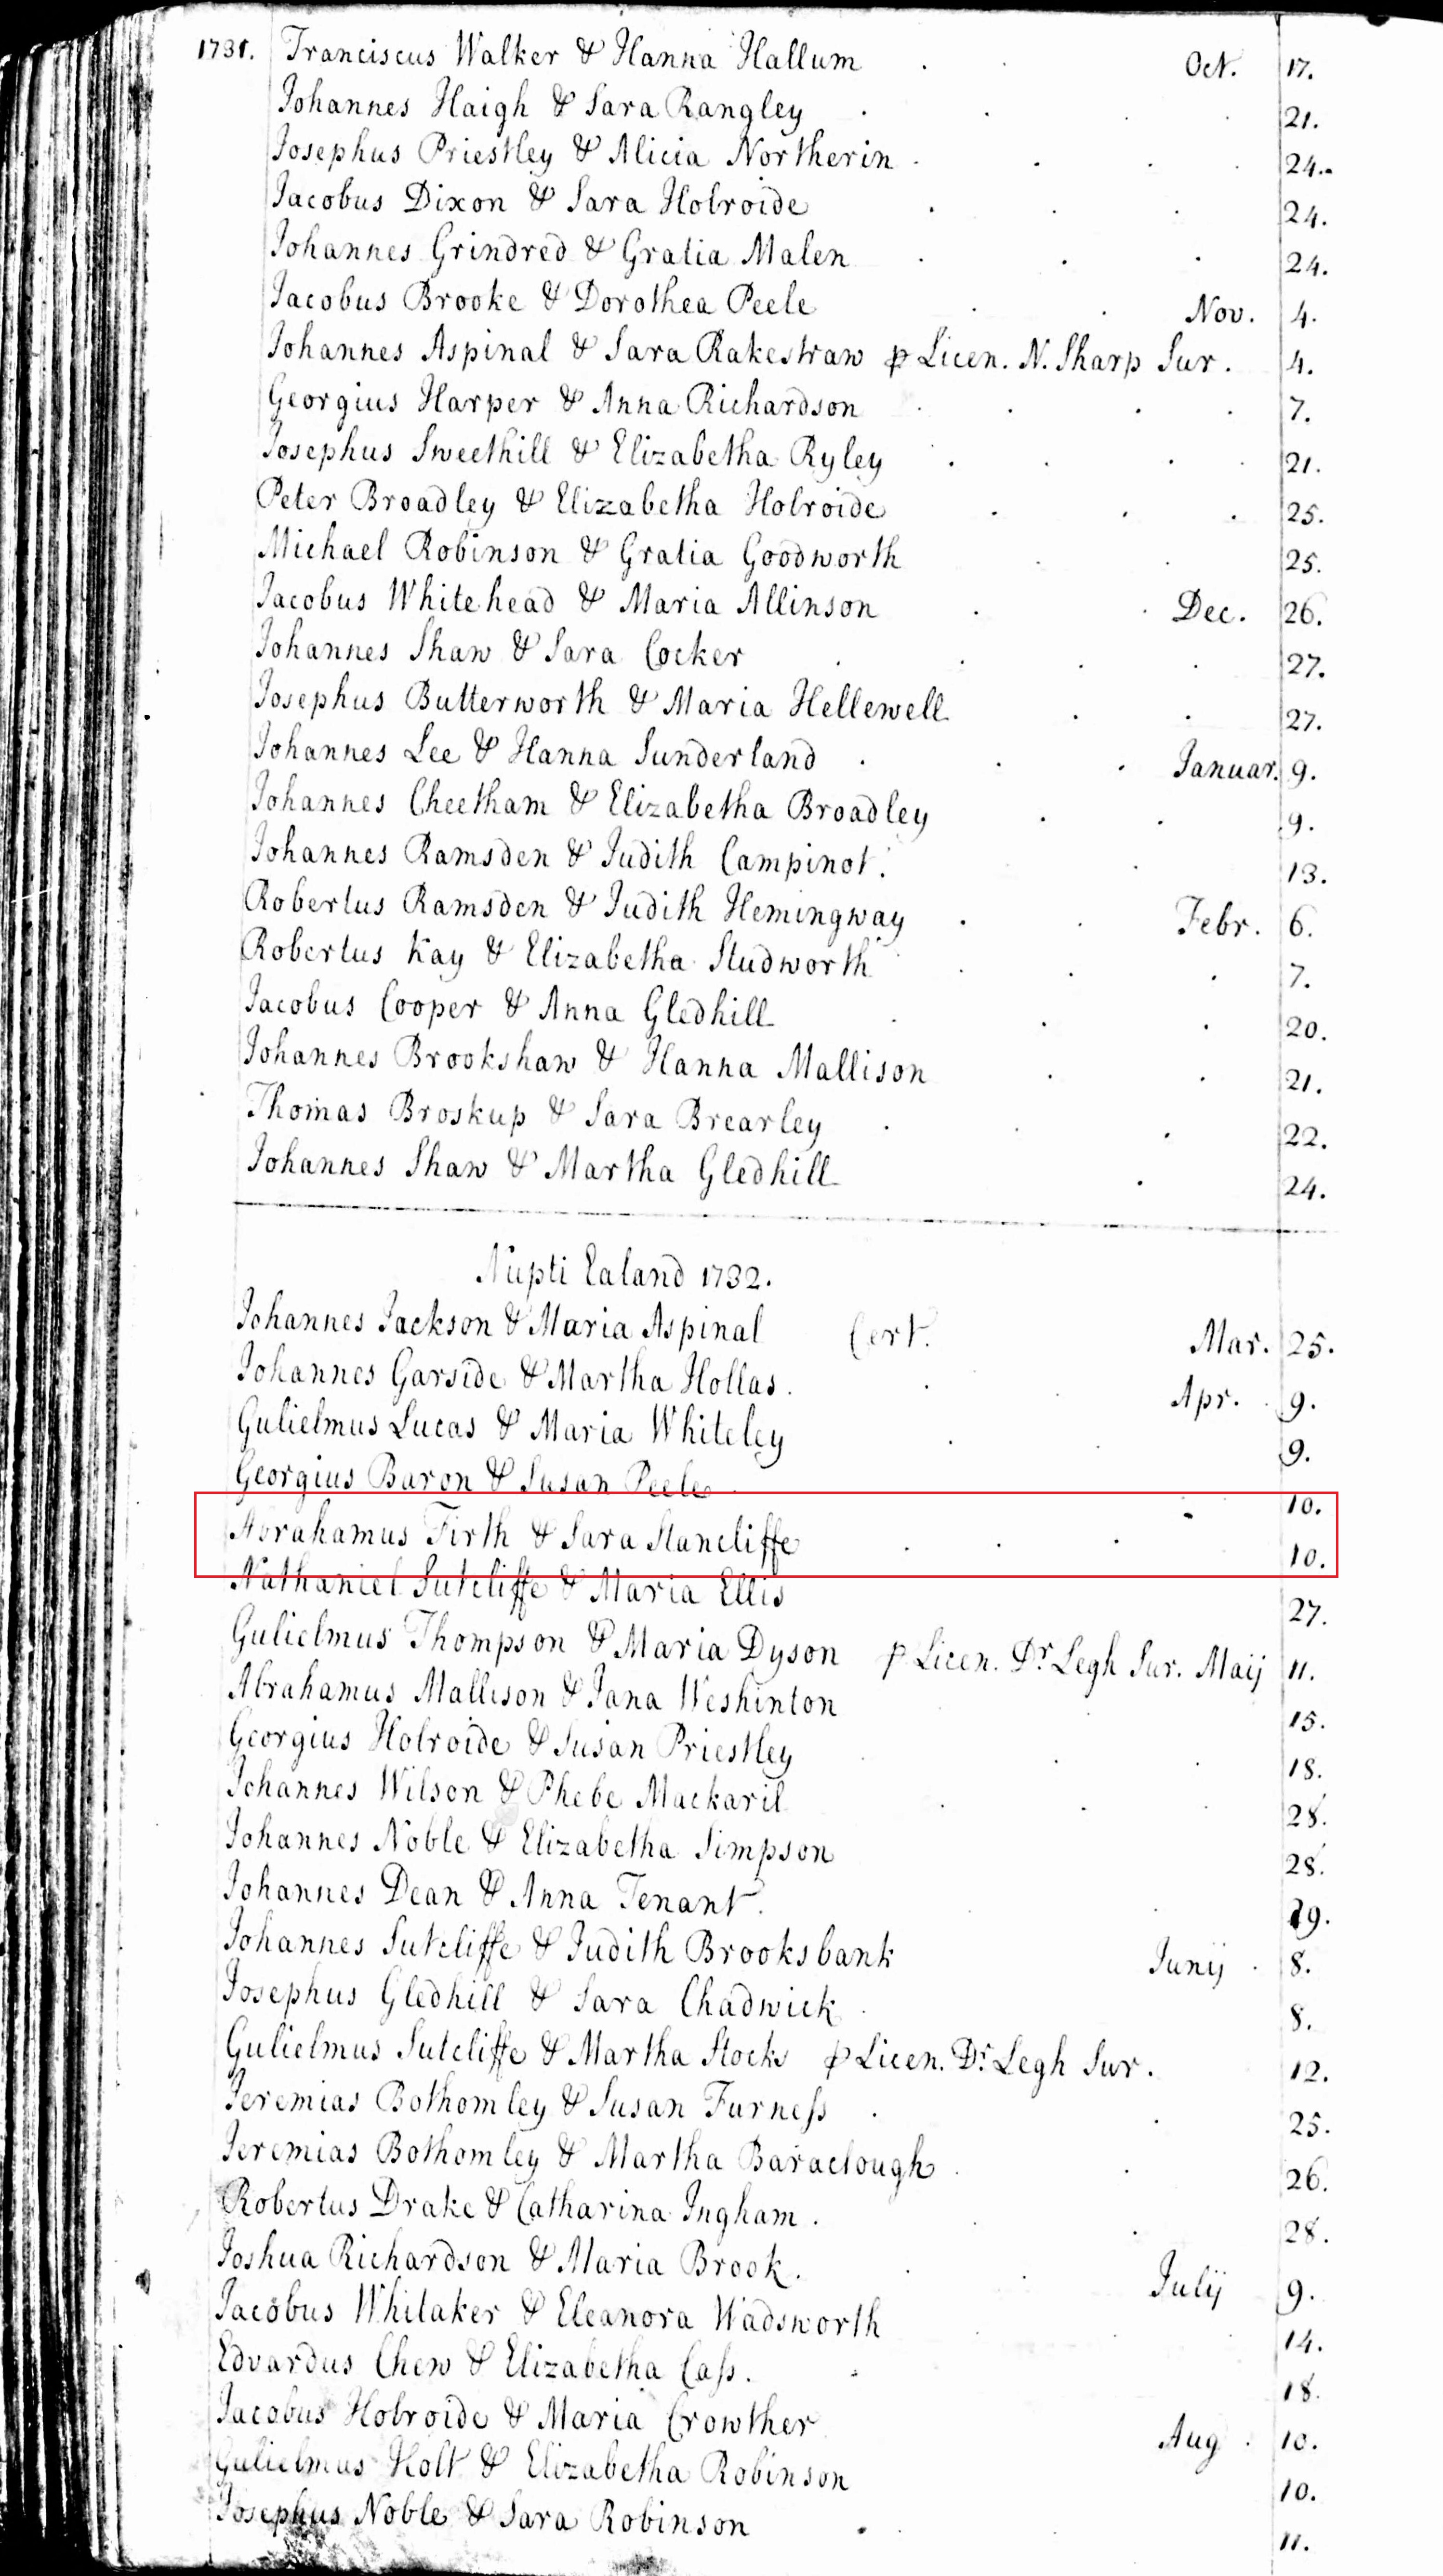 1731. Franciscus Walker & Hanna Hallum Oct. 17.
Johannes Haigh & Sara Rangley 21.
Josephus Priestley & Alicia Northerin 24.
Jacobus Dixon & Sara Holroide 24.
Johannes Grindred & Gratia Malen 24.
Jacobus Brooke & Dorothea Peele Nov. 4.
Johannes Aspinal & Sara Rakestraw p Licen. N. Sharp Sur. 4.
Georgius Harper & Anna Richardson 7.
Josephus Sweethill & Elizabetha Ryley 21.
Peter Broadley & Elizabetha Holroide 25.
Michael Robinson & Gratia Goodworth 25.
Jacobus Whitehead & Maria Allinson Dec. 26.
Johannes Shaw & Sara Cocker 27.
Josephus Butterworth & Maria Hellewell 27.
Johannes Lee & Hanna Sunderland Januar. 9.
Johannes Cheetham & Elizabetha Broadley 9.
Johannes Ramsden & Judith Campinot. 13.
Robertus Ramsden & Judith Hemingway Febr. 6.
Robertus Kay & Elizabetha Studworth 7.
Jacobus Cooper & Anna Gledhill 20.
Johannes Brookshaw & Hanna Mallison 21.
Thomas Broskup & Sara Brearley 22.
Johannes Shaw & Martha Gledhill 24.
Nupti Ealand 1732.
Johannes Jackson & Maria Aspinal Cert. Mar. 25.
Johannes Garside & Martha Hollas. Apr. 9.
Gulielmus Lucas & Maria Whiteley 9.
Georgius Baron & Susan Peele 10.
Abrahamus Firth & Sara Stancliffe 10.
Nathaniel Sutcliffe & Maria Ellis 27.
Gulielmus Thompson & Maria Dyson p Licen. Dr Legh Sur. Maij 11.
Abrahamus Mallison & Jana Weshinton 15.
Georgius Holroide & Susan Priestley 18.
Johannes Wilson & Phebe Mackaril 28.
Johannes Noble & Elizabetha Simpson 28.
Johannes Dean & Anna Tenant. 29.
Johannes Sutcliffe & Judith Brooksbank Junij 8.
Josephus Gledhill & Sara Chadwick 8.
Gulielmus Sutcliffe & Martha Stocks p Licen. Dr. Legh Sur. 12.
Jeremias Bothomley & Susan Furness 25.
Jeremias Bothomley & Martha Baraclough 26.
Robertus Drake & Catharina Ingham. 28.
Joshua Richardson & Maria Brook. Julij 9.
Jacobus Whitaker & Eleanora Wadsworth 14.
Edvardus Chew & Elizabetha Cass. 18.
Jacobus Holroide & Maria Crowther Aug. 10.
Gulielmus Holt & Elizabetha Robinson 10.
Josephus Noble & Sara Robinson 11.